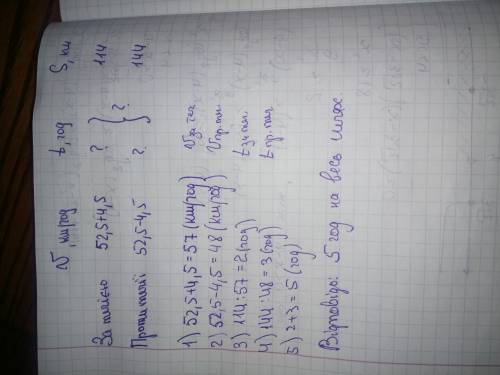 V, км/год t, год S, км
За течією 52,5+4,5 ? 114
Проти течії 52,5-4,5 ? 144
?
1) 52,5+4,5=57 (км/год) Vза теч
2) 52,5-4,5=48 (км/год) Vпр.теч.
3) 114:57=2 (год) tза теч.
4) 144:48=3 (год) tпр.теч
5) 2+3=5 (год)
Відповідь: 5 год на весь шлях.